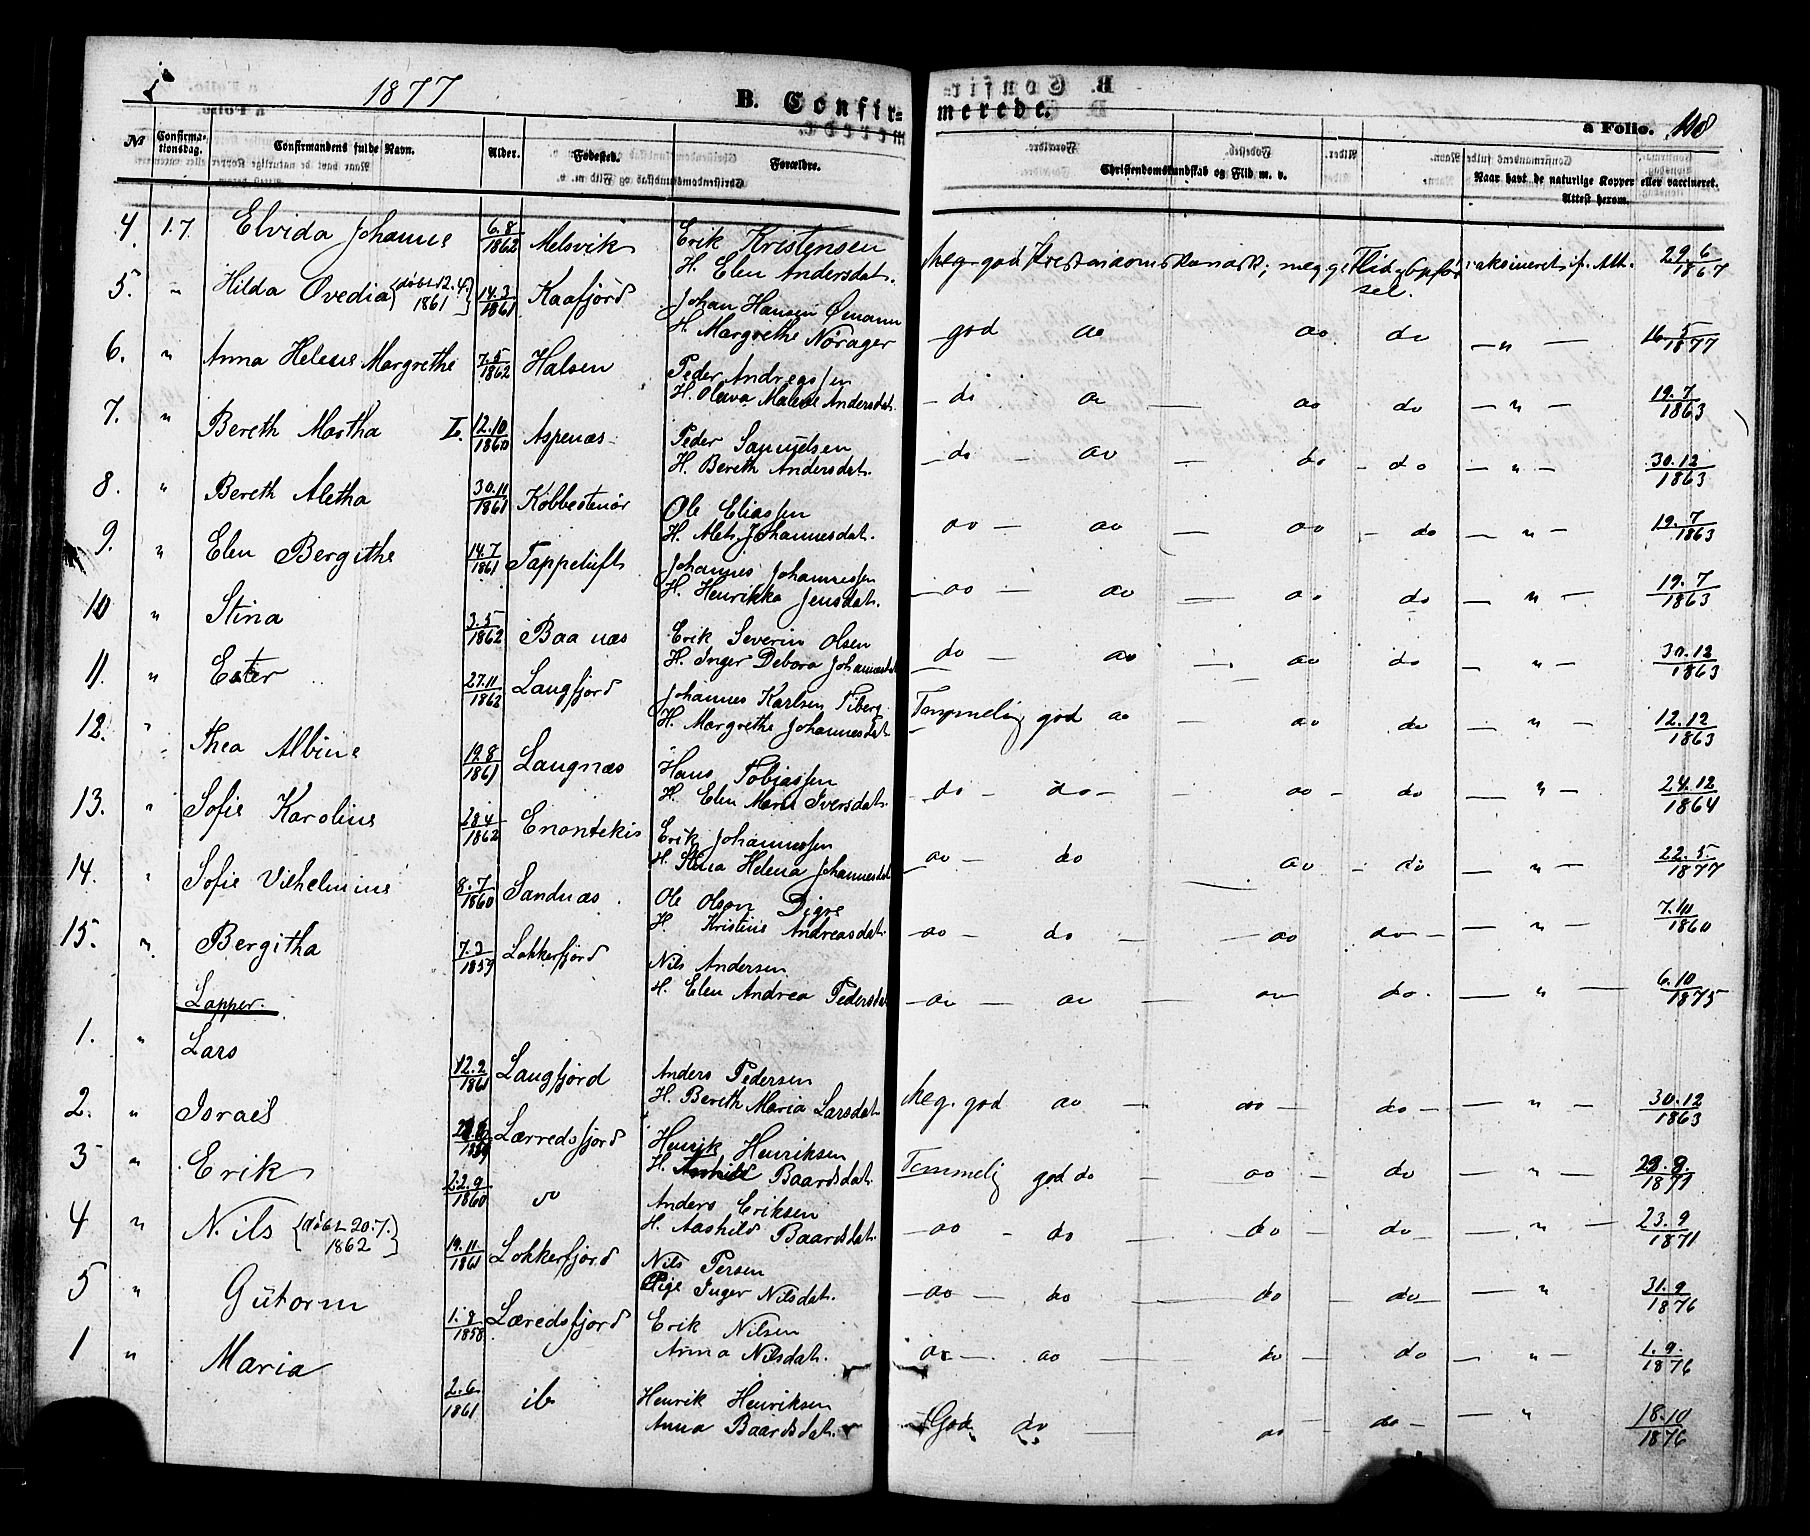 1877
B. Confir=
merede.
a Folio. 118
№
Confirma-
tionsdag.
Confirmandens fulde Navn.
Alder.
Fødested.
Forældre.
Christendomskundskab og Flid m. v.
Naar havt de naturlige Kopper eller vaccineret.
Attest herom.
4. 17 Elvida Johanne 6.8/1862 Melsvik Erik Kristensen
H. Elen Andersdat. Meg. god Kristendomskundsk; meg. g. Flid og Opfør-
sel. vaksineret if. Att. 29.6/1867
5. " Hilda Ovedia {døbt 12.4. 1861} 14.3/1861 Kaafjord Johan Hansen Ømann
H. Margrethe Norager god do do do — " — 16.5/1877
6. " Anna Helene Margrethe 7.5/1862 Halsen Peder Andreassen
H. Olava Malene Andersdat. — do do — do do — " — 19.7/1863
7. " Bereth Martha L. 12.10/1860 Aspenæs Peder Samuelsen
H. Bereth Andersdat. — do — do — do — do — " — 30.12/1863
8. " Bereth Aletha 30.11/1861 Kobbestenør Ole Eliassen
H. Alet Johannesdat. do — do — do — do — " — 19.7/1863
9. " Elen Bergithe 14.7/1861 Tappeluft Johannes Johannessen
H. Henrikka Jensdat. — do — do — do do — " — 19.7/1863
10 " Stina 3.5/1862 Baanæs Erik Severin Olsen
H. Inger Debora Johannesdat do — do — do do — " — 30.12/1863
11. " Ester 27.11/1862 Langfjord Johannes Karlsen Fiberg
H. Margrethe Johannesdat Temmelig god do — do do — " — 12.12/1863
12. " Thea Albine 19.8/1861 Langnæs Hans Tobiassen
H. Elen Marie Iversdat. do — do — — do — do — " — 24.12/1864
13. " Sofie Karoline 28.4/1862 Enontekis Erik Johannessen
H. Stina Helena Johannesdat do — do do — do — " — 22.5./1877
14. " Sofie Vilhelmine 8.7/1860 Sandnæs Ole Olsen Digre
H. Kristine Andreasdat. — do — do — — do do — — " — 7.11/1860
15. " Bergitha 7.3/1859 Lokkerfjord Nils Andersen
H. Elen Andrea Pedersdat — do — do — do — do. — " — 6.10/1875
Lapper.
1. " Lars 12.2/1861 Langfjord Anders Pedersen
H. Bereth Maria Larsdat. Meg. god do — do — do — — " — 30.12/1863
2. " Israel Lærredsfjord Henrik Henriksen
H. Baardsdat. Temmelig god do — do — do — " — 23.9./1871
3 " Erik 22.9/1860 do Anders Eriksen
H. Aashild Baardsdat. — do — do — do — do — — " — 23.9/1871
4 " Nils {døbt 20.7. 1862} 19.11/1861 Lokkerfjord Nils Persen
Pige Inger Nilsdat. — do — do — do — do — — " 31.9/1876
5 " Gutorm 1.8/1858 Læredsfjord Erik Nilsen
Anna Nilsdat. do — do — do — do — " — 1.9./1876
1 " Maria 2.6/1861 ib Henrik Henriksen
Anna Baardsdat. God do — do do — — " 18.10/1876